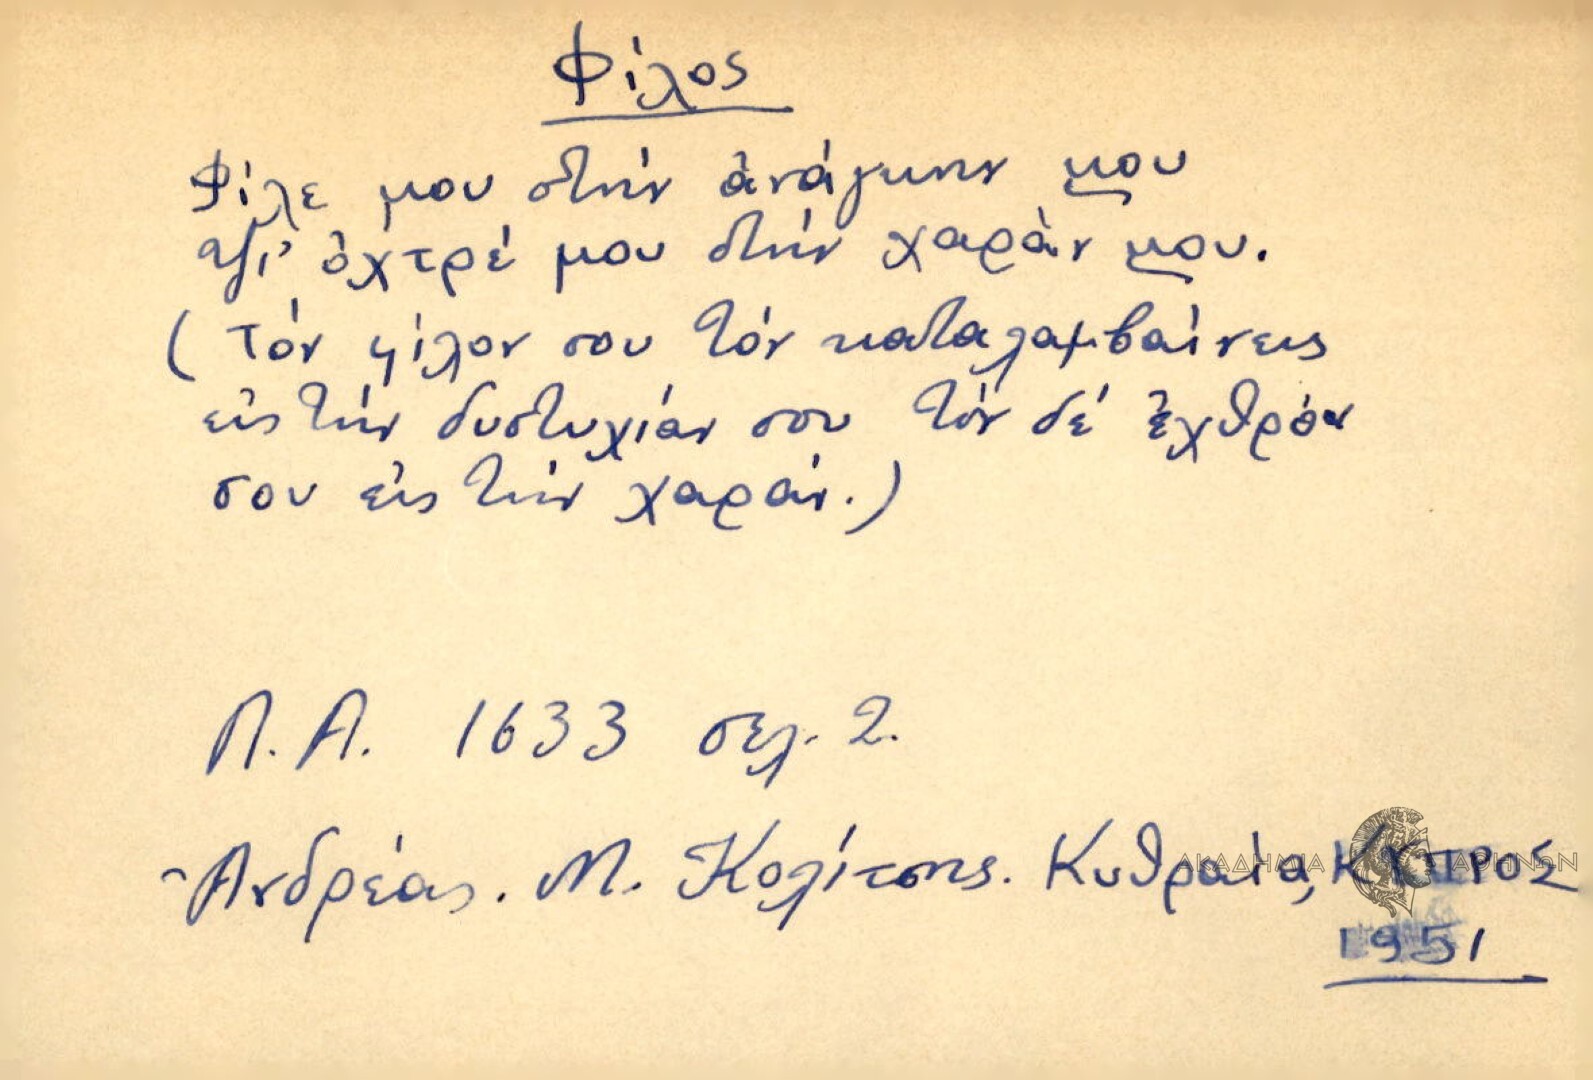 Φίλος
Φίλε μου στήν ἀνάγκην μου
τζι' ὀχτρέ μου στήν χαράν μου.
(Τόν φίλον σου τόν καταλαμβαίνεις
εἰς τήν δυστυχίαν σου τόν δέ ἐχθρόν
σου εἰς τήν χαράν.)
Π.Α. 1633 σελ. 2.
Ἀνδρέας. Μ. Κολίτσης. Κυθραία, ΚΥΠΡΟΣ
ΑΚΑΔΗΜΙΑ ΑΘΗΝΩΝ
1951